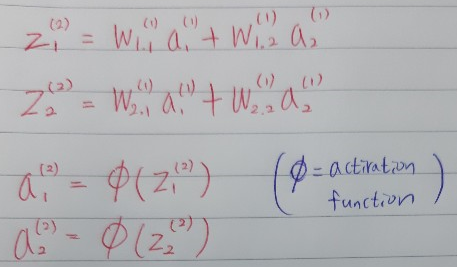 z₁⁽²⁾ = W₁.₁⁽¹⁾ a₁⁽¹⁾ + W₁.₂⁽¹⁾ a₂⁽¹⁾
z₂⁽²⁾ = W₂.₁⁽¹⁾ a₁⁽¹⁾ + W₂.₂⁽¹⁾ a₂⁽¹⁾
a₁⁽²⁾ = ϕ(z₁⁽²⁾) (ϕ = activation
function)
a₂⁽²⁾ = ϕ(z₂⁽²⁾)